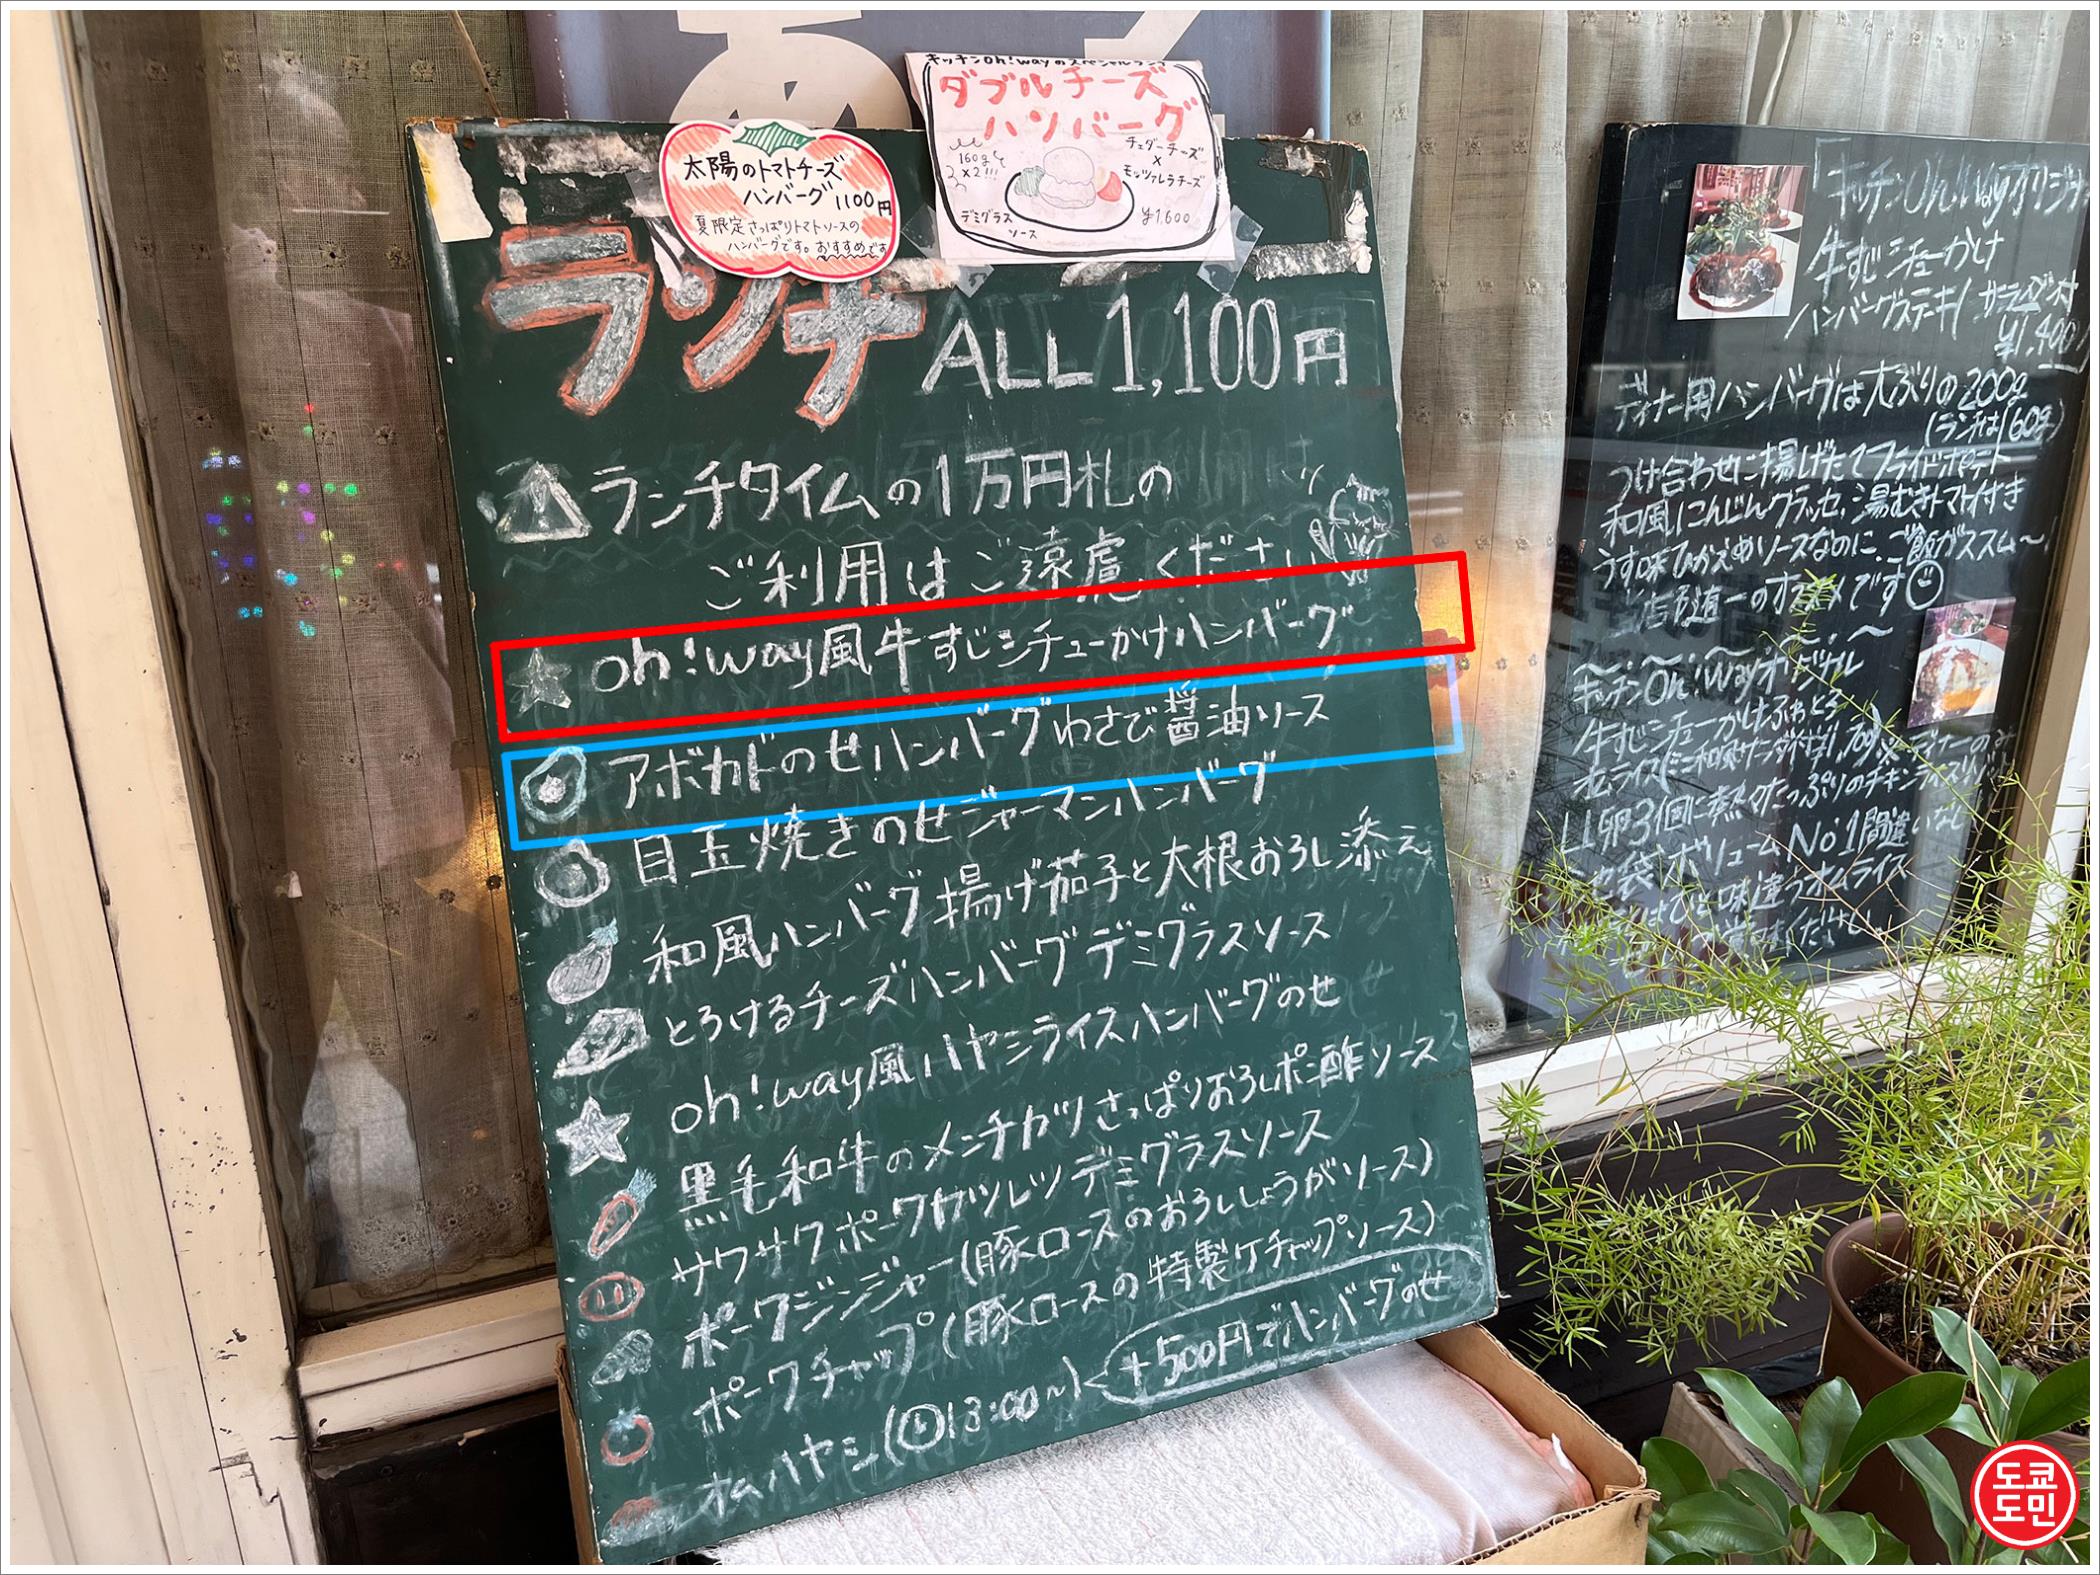 キッチンoh!wayのスペシャルランチ
ダブルチーズ
ハンバーグ
160g
×2!!!
チェダーチーズ
×
モッツァレラチーズ
デミグラス
ソース
¥1,600
太陽のトマトチーズ
ハンバーグ 1100円
夏限定さっぱりトマトソースの
ハンバーグです。おすすめです
ランチ ALL 1,100円
ランチタイムの1万円札の
ご利用はご遠慮ください
oh!way風牛すじシチューかけハンバーグ
アボカドのせハンバーグわさび醤油ソース
目玉焼きのせジャーマンハンバーグ
和風ハンバーグ揚げ茄子と大根おろし添え
とろけるチーズハンバーグデミグラスソース
oh!way風ハヤシライスハンバーグのせ
黒毛和牛のメンチカツさっぱりおろしポン酢ソース
サクサクポークカツレツデミグラスソース
ポークジンジャー(豚ロースのおろししょうがソース)
ポークチャップ(豚ロースの特製ケチャップソース)
オムハヤシ(13:00〜) +500円でハンバーグのせ
「キッチンOh!wayオリジナ
牛すじシチューかけ
ハンバーグステーキ(サラダ付
¥1,400)
ディナー用ハンバーグは大ぶりの200g
(ランチは160g)
つけ合わせに揚げたてフライドポテト
和風にんじんグラッセ、湯むきトマト付き
うす味ひかえめソースなのに、ご飯がススム〜!
当店
一のオススメです
キッチンOh!wayオリジナル
牛すじシチューかけふわとろ
オムライス
LL卵3個に熱々たっぷりのチキンライス
ボリュームNo.1間違いなし
味違うオムライス
ください。
도쿄
도민